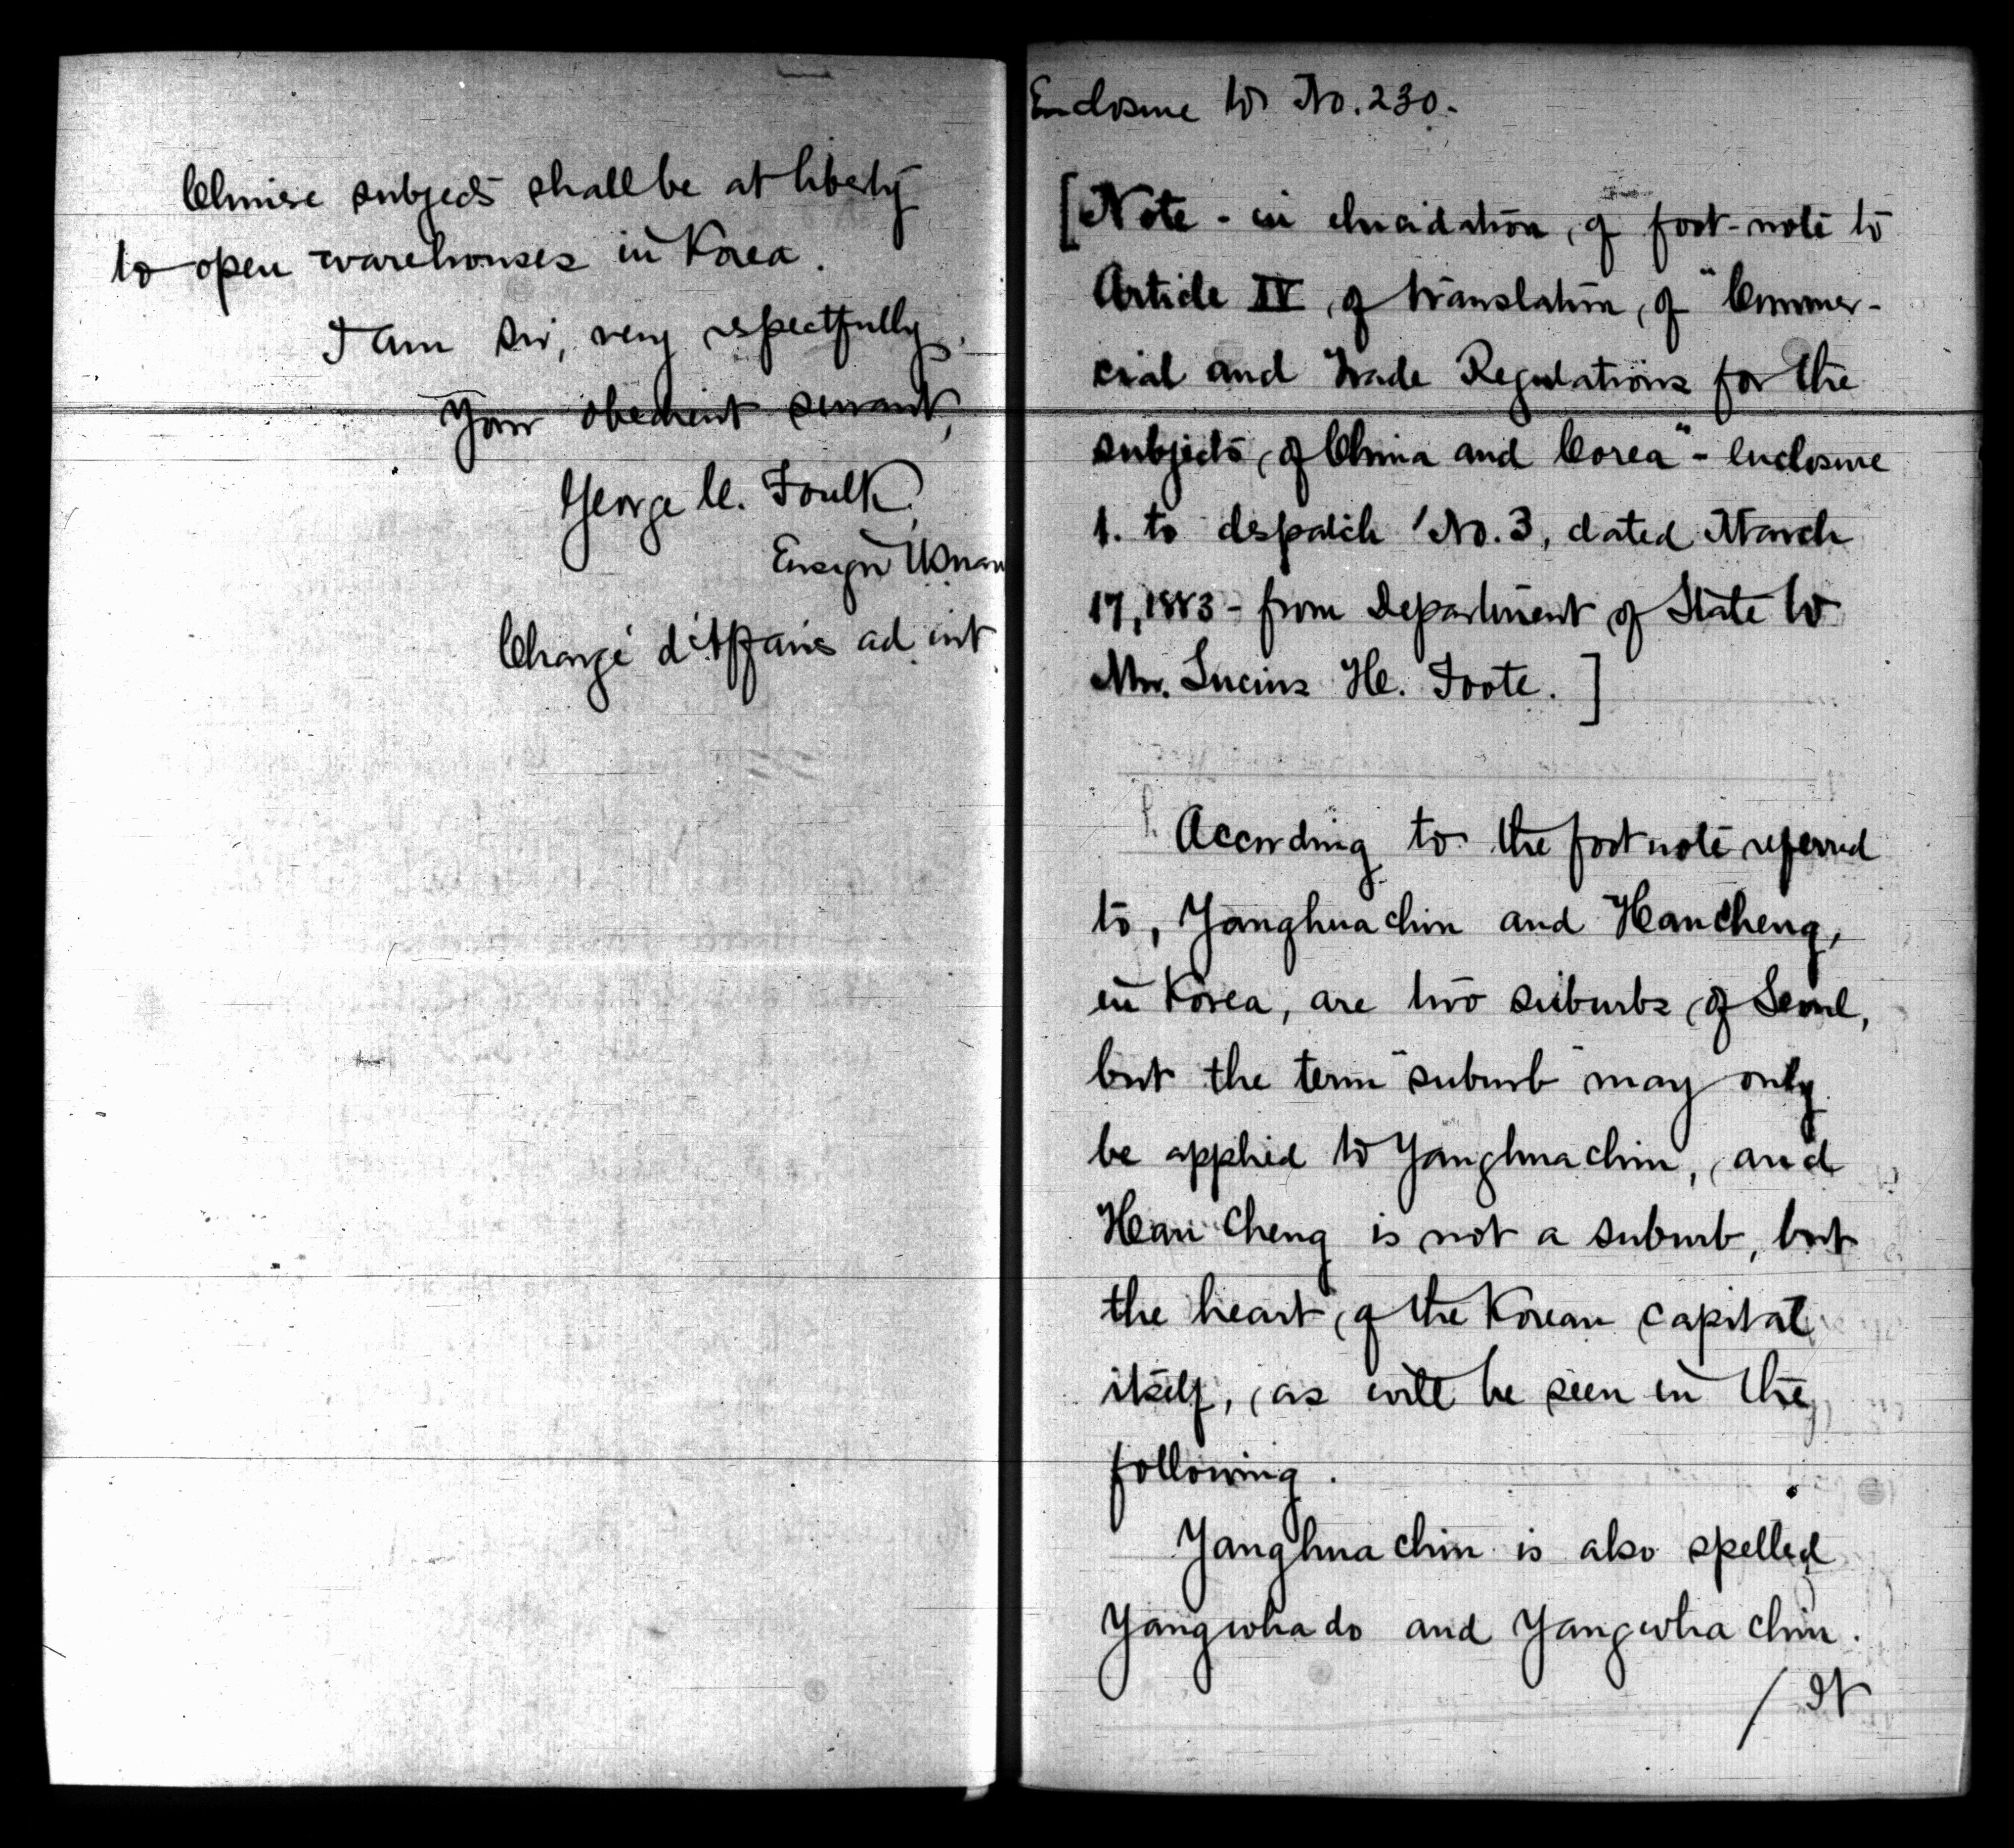 Chinese subjects shall be at liberty
to open warehouses in Korea.
I am sir, very respectfully,
Your obedient servant,
George C. Foulk,
Ensign U.S. Navy
Chargé d'Affaires ad int
Enclosure to No. 230.
[Note - in elucidation, of foot-note to
Article IV, of translation, of "Commer-
cial and Trade Regulations for the
subjects, of China and Corea" - Enclosure
1. to dispatch No. 3, dated March
17, 1883 - from Department of State to
Mr. Lucius H. Foote.]
According to the foot note referred
to, Yanghuachin and Hancheng,
in Korea, are two suburbs of Seoul,
but the term "suburb" may only
be applied to Yanghuachin, and
Han Cheng is not a suburb, but
the heart, of the Korean capital
itself, as will be seen in the
following.
Yanghuachin is also spelled
Yangwhado and Yangwha chin.
/ It